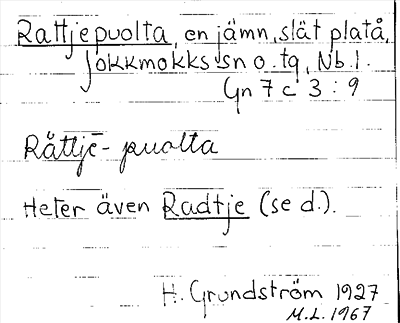 Rattjepuolta, en jämn, slät platå,
Jokkmokks sn o. tg, Nb.l.
Gn 7 c 3 : 9
Råttjē- puolta
Heter även Radtje (se d.).
H. Grundström 1927
M.L. 1967